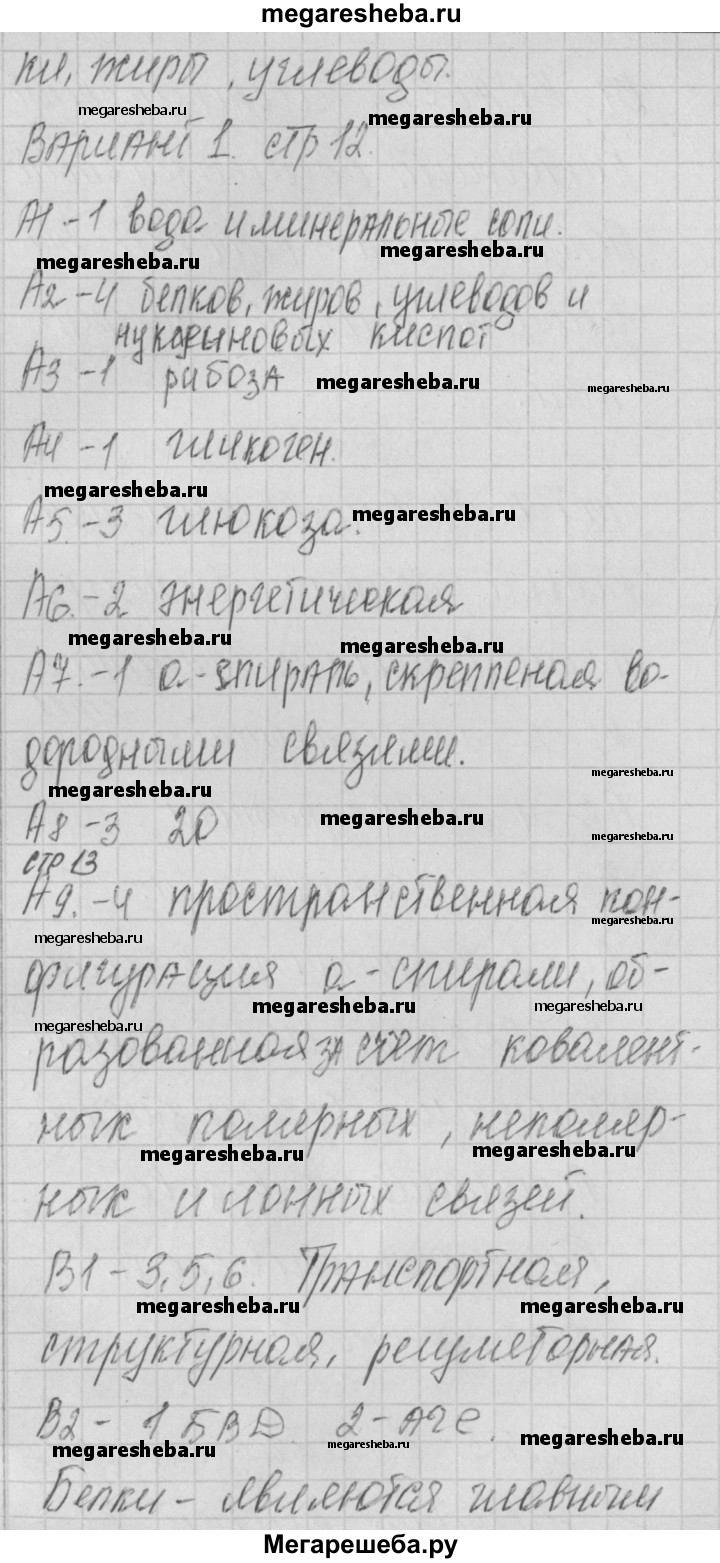 megaresheba.ru
ки, жиры, углеводы.
megaresheba.ru
megaresheba.ru
Вариант 1. стр 12.
А1 - 1 вода и минеральные соли.
megaresheba.ru
megaresheba.ru
А2 - 4 белков, жиров, углеводов и
нуклеиновых кислот
А3 - 1 рибоза
megaresheba.ru
megaresheba.ru
А4 - 1 гликоген.
megaresheba.ru
А5. - 3 глюкоза.
megaresheba.ru
А6. - 2 энергетическая
megaresheba.ru
megaresheba.ru
А7. - 1 а-спираль, скрепленая во-
дородными связями.
megaresheba.ru
megaresheba.ru
А8 - 3 20
megaresheba.ru
стр 13
А9. - 4 пространственная кон-
megaresheba.ru
megaresheba.ru
фигурация а-спирали, об-
megaresheba.ru
megaresheba.ru
megaresheba.ru
разованная за счёт ковалент-
ных полярных, неполяр-
megaresheba.ru
megaresheba.ru
ных и ионных связей.
В1 - 3, 5, 6. Транспортная,
megaresheba.ru
megaresheba.ru
структурная, регуляторная.
В2 - 1 БВД 2 - АГЕ.
megaresheba.ru
megaresheba.ru
megaresheba.ru
Белки - являются главным
Мегарешеба.ру